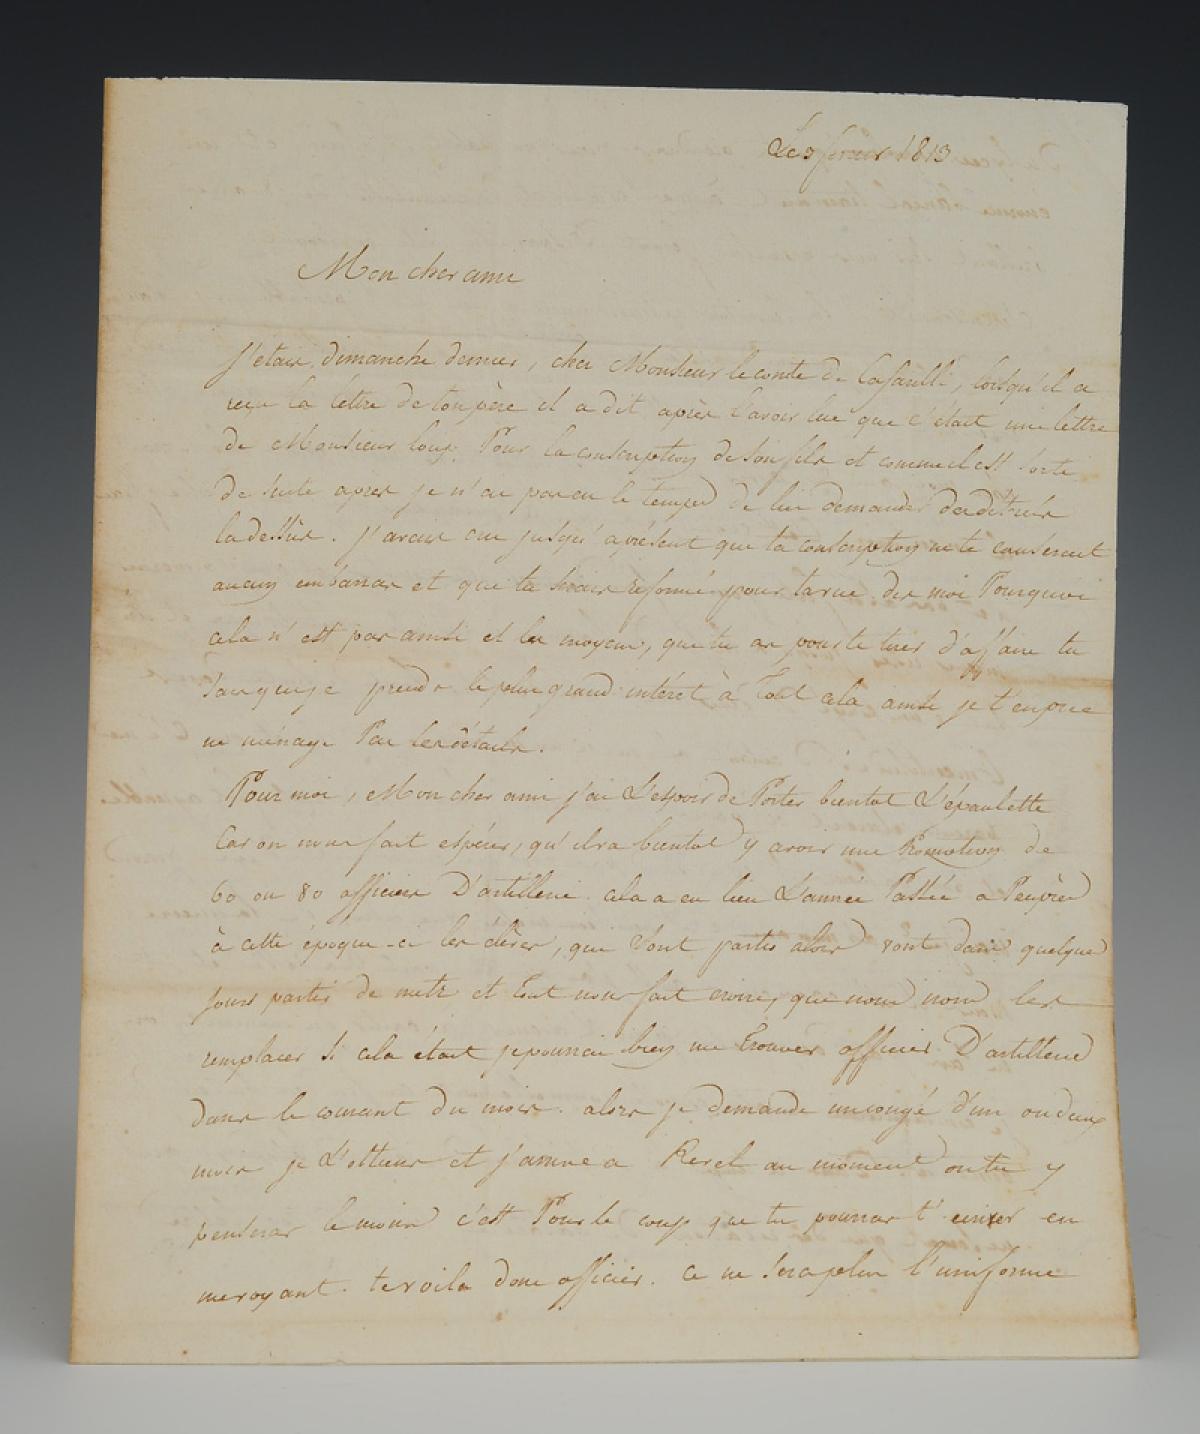 Le 9 fevrier 1813
Mon cher ami
J'étais, dimanche dernier, chez Monsieur le conte de Cafarelli, lorsqu'il a
reçu la lettre de ton père il a dit après l'avoir lue que c'était une lettre
de Monsieur loup Pour la conscription de son fils et comme il est sorti
de suite apres je n'ai pas eu le temps de lui demander des détails
la dessus. J'avais cru jusqu'aprésent que ta conscription ne te causerait
aucun embarras et que tu serais reformé pour ta vue. dis moi Pourquoi
cela n'est pas ainsi et les moyens, que tu as pour te tirer d'affaire tu
sais que je prends le plus grand intérêt à Tout cela ainsi je t'en prie
ne ménage Pas les détails.
Pour moi, Mon cher ami j'ai L'espoir de Porter bientot L'épaulette
Car on nous fait espérer, qu'il va bientot y avoir une Promotion de
60 ou 80 officiers D'artillerie. cela a eu lieu L'année Passée a Peuprès
à cette époque-ci les élèves, qui sont partis alors vont dans quelque
jours partir de metz et tout nous fait croire, que nous irons les
remplacer si cela était je pourrais bien me trouver officier D'artillerie
dans le courant du mois. alors je demande un congé d'un ou deux
mois je L'obtiens et j'arrive a Revel au moment ou tu y
penseras le moins c'est Pour le coup que tu pourras t'écrier en
me voyant. te voila donc officier. ce ne sera plus l'uniforme